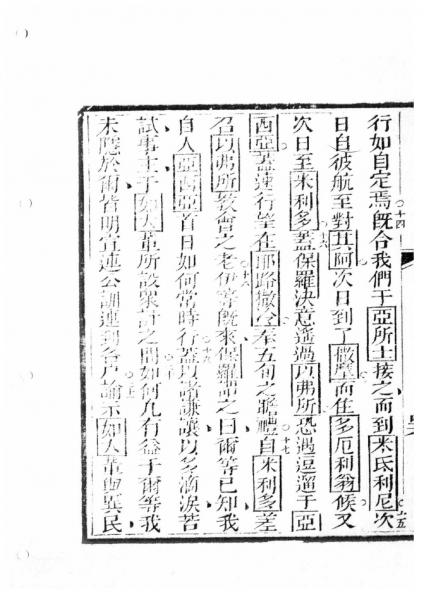 行如自定焉既合我們于亞所士接之而到米氐利尼次
日自彼航至對其阿次日到了撒摩而住多厄利翁候又
次日至米利多蓋保羅決意遥過以弗所恐遇逗遛于亞
西亞葢速行望在耶路撒冷奉五旬之瞻禮自米利多差
召以弗所教會之老伊等既來保羅謂之曰爾等已知我
自入亞西亞首日如何常時行葢以諸謙讓以多滴淚若
試事主于如大輩所設眾計之間如何凡有益于爾等我
未隱於爾皆明宣連公訓連到各戶諭示如大輩與異民